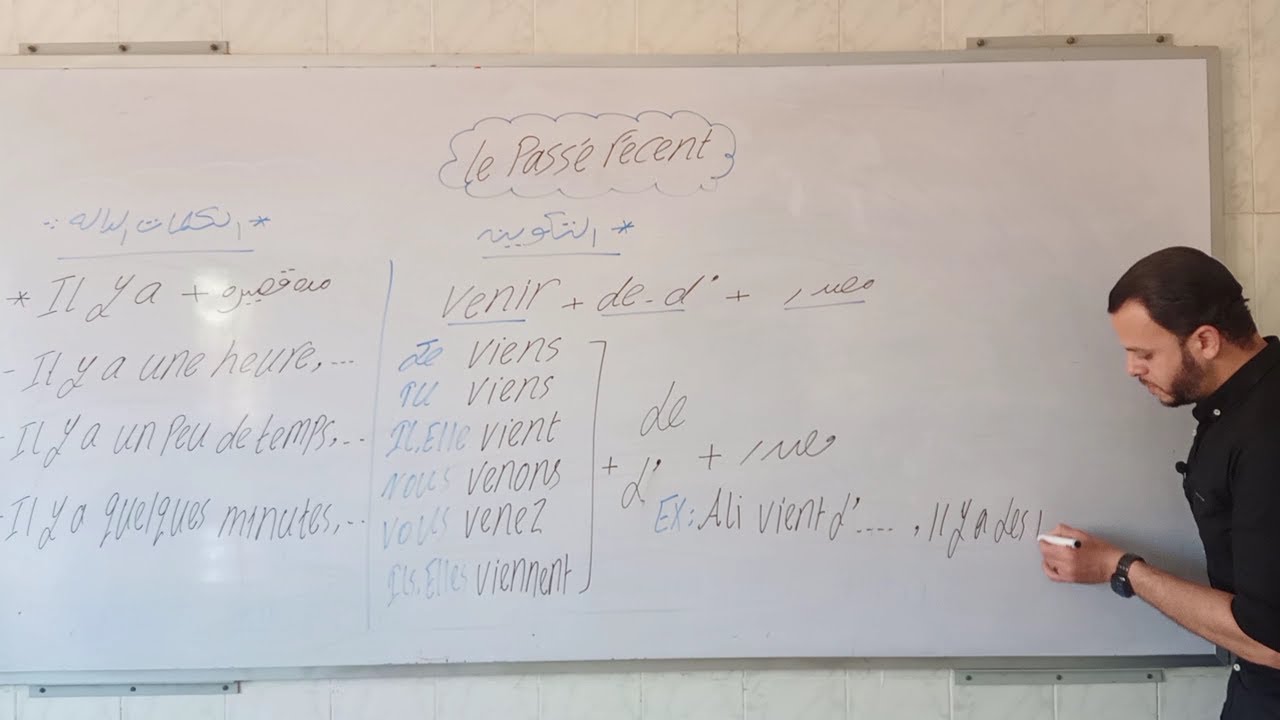 le Passé récent
* الكلمات الداله :-
* Il y a + مده قصيره
- Il y a une heure, ...
- Il y a un peu de temps, ...
- Il y a quelques minutes, ...
* التكوين
venir + de - d' + مصدر
Je viens
Tu viens
Il, Elle vient
nous venons
vous venez
Ils, Elles viennent
+ de
d' + مصدر
EX: Ali vient d'.... , Il y a des